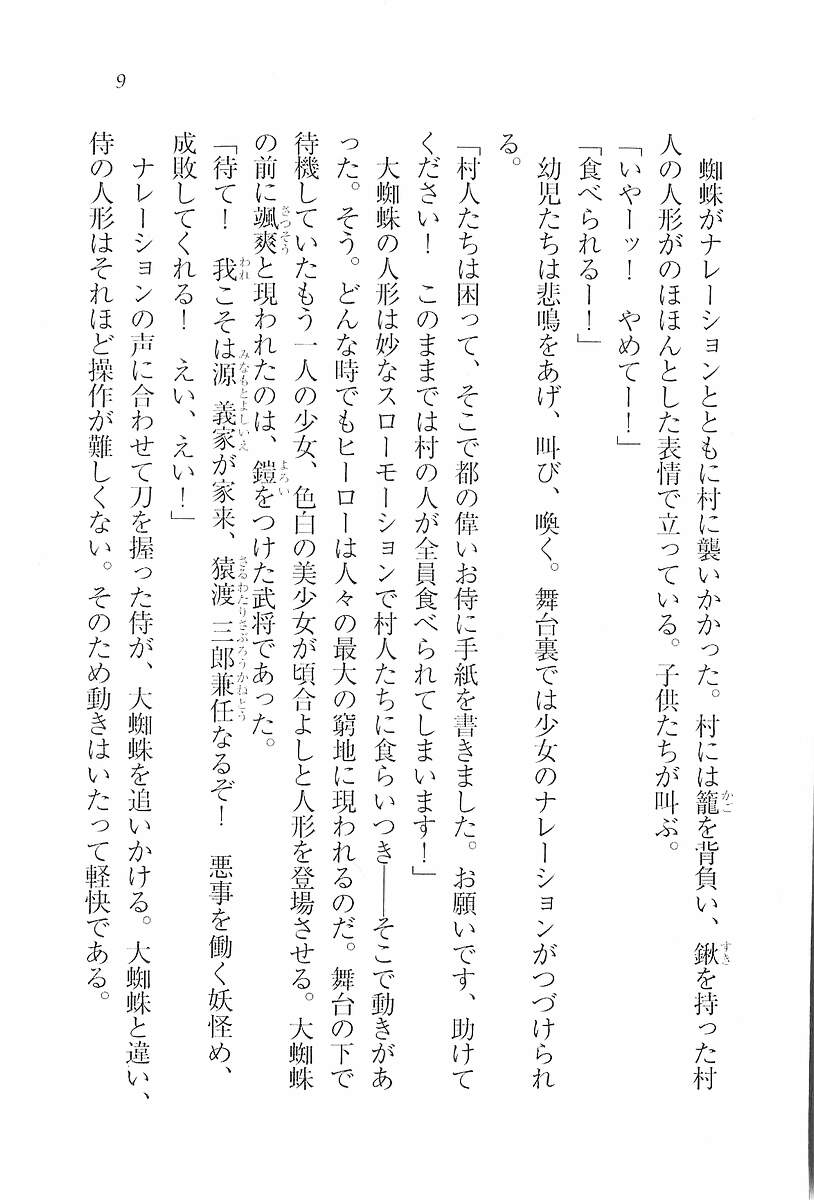 9
蜘蛛がナレーションとともに村に襲いかかった。村には籠を背負い、鍬を持った村
人の人形がのほほんとした表情で立っている。子供たちが叫ぶ。
「いやーッ！　やめてー！」
「食べられるー！」
幼児たちは悲鳴をあげ、叫び、喚く。舞台裏では少女のナレーションがつづけられ
る。
「村人たちは困って、そこで都の偉いお侍に手紙を書きました。お願いです、助けて
ください！　このままでは村の人が全員食べられてしまいます！」
大蜘蛛の人形は妙なスローモーションで村人たちに食らいつき――そこで動きがあ
った。そう。どんな時でもヒーローは人々の最大の窮地に現われるのだ。舞台の下で
待機していたもう一人の少女、色白の美少女が頃合よしと人形を登場させる。大蜘蛛
の前に颯爽と現われたのは、鎧をつけた武将であった。
「待て！　我こそは源義家が家来、猿渡三郎兼任なるぞ！　悪事を働く妖怪め、
成敗してくれる！　えい、えい！」
ナレーションの声に合わせて刀を握った侍が、大蜘蛛を追いかける。大蜘蛛と違い、
侍の人形はそれほど操作が難しくない。そのため動きはいたって軽快である。